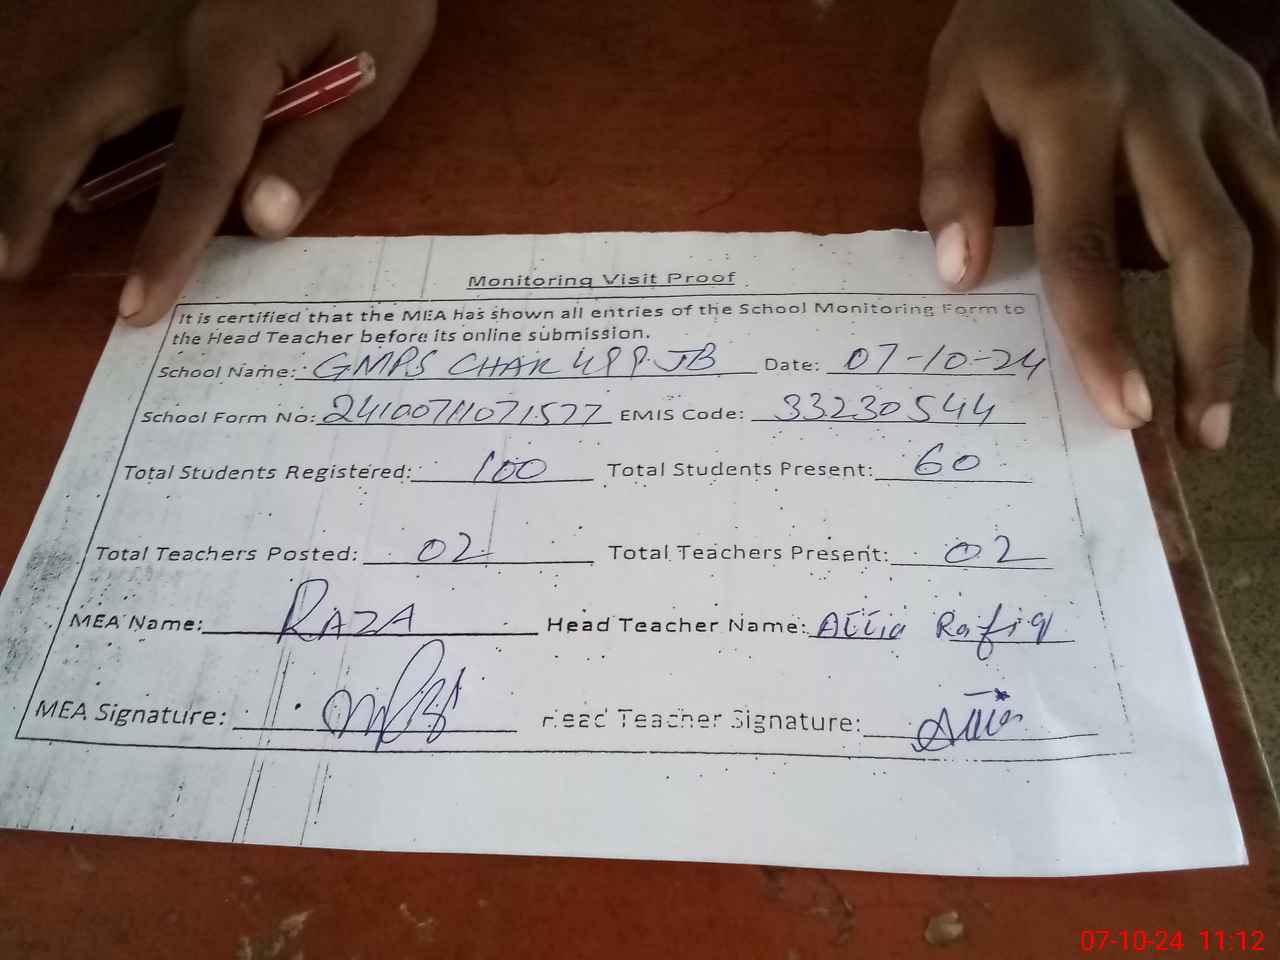 Monitoring Visit Proof
It is certified that the MEA has shown all entries of the School Monitoring Form to
the Head Teacher before its online submission.
School Name: GMPS CHAK 499 JB Date: 07-10-24
School Form No: EMIS Code: 33230544
Total Students Registered: 100 Total Students Present: 60
Total Teachers Posted: 02 Total Teachers Present: 02
MEA Name: RAZA Head Teacher Name: Attia Rafiq
MEA Signature: Head Teacher Signature: Attia
07-10-24 11:12